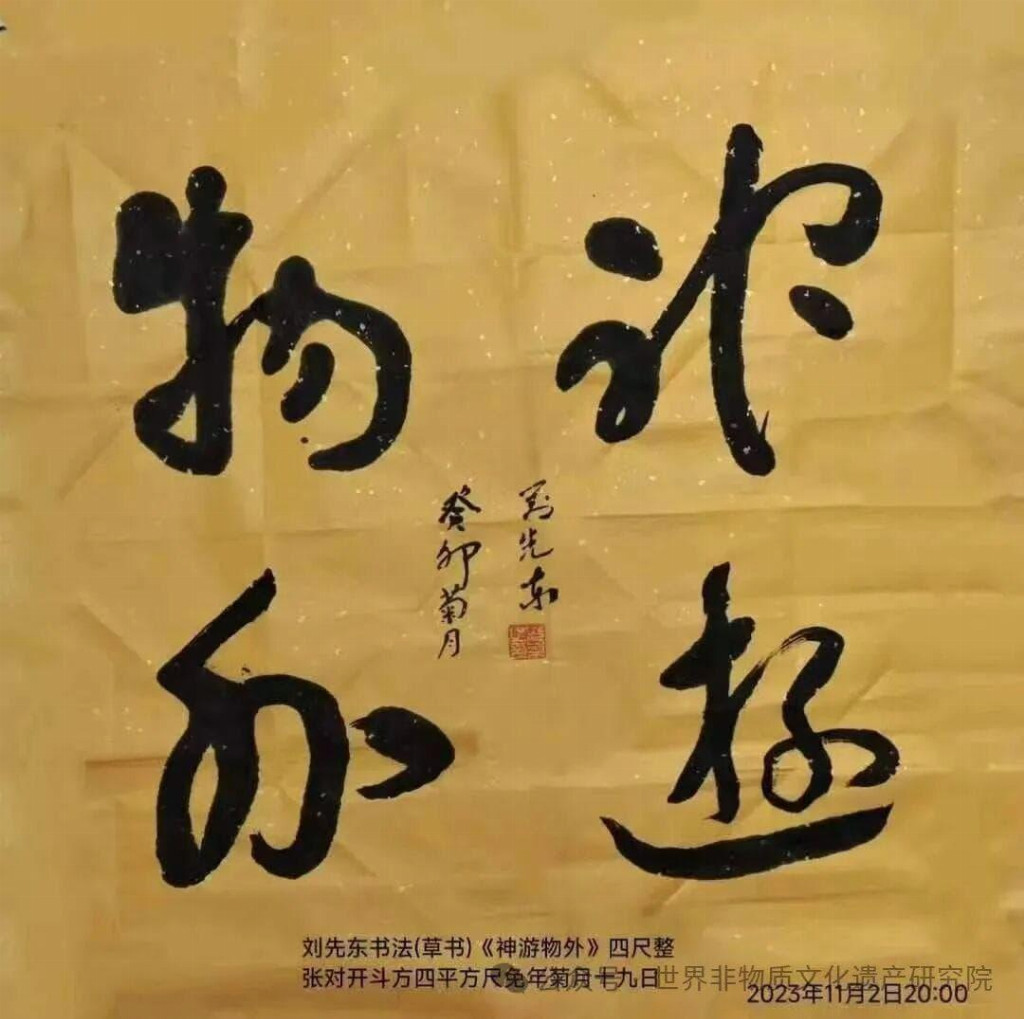 神遊
物外
劉先東
癸卯菊月
刘先东书法(草书)《神游物外》四尺整
张对开斗方四平方尺兔年菊月十九日
公众号 世界非物质文化遗产研究院
2023年11月2日20:00